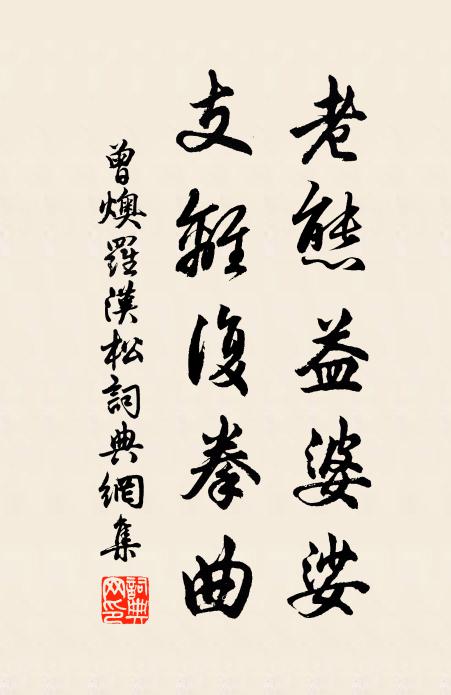 老態益婆娑
支離復拳曲
曾燠羅漢松詞典網集
詞典网印